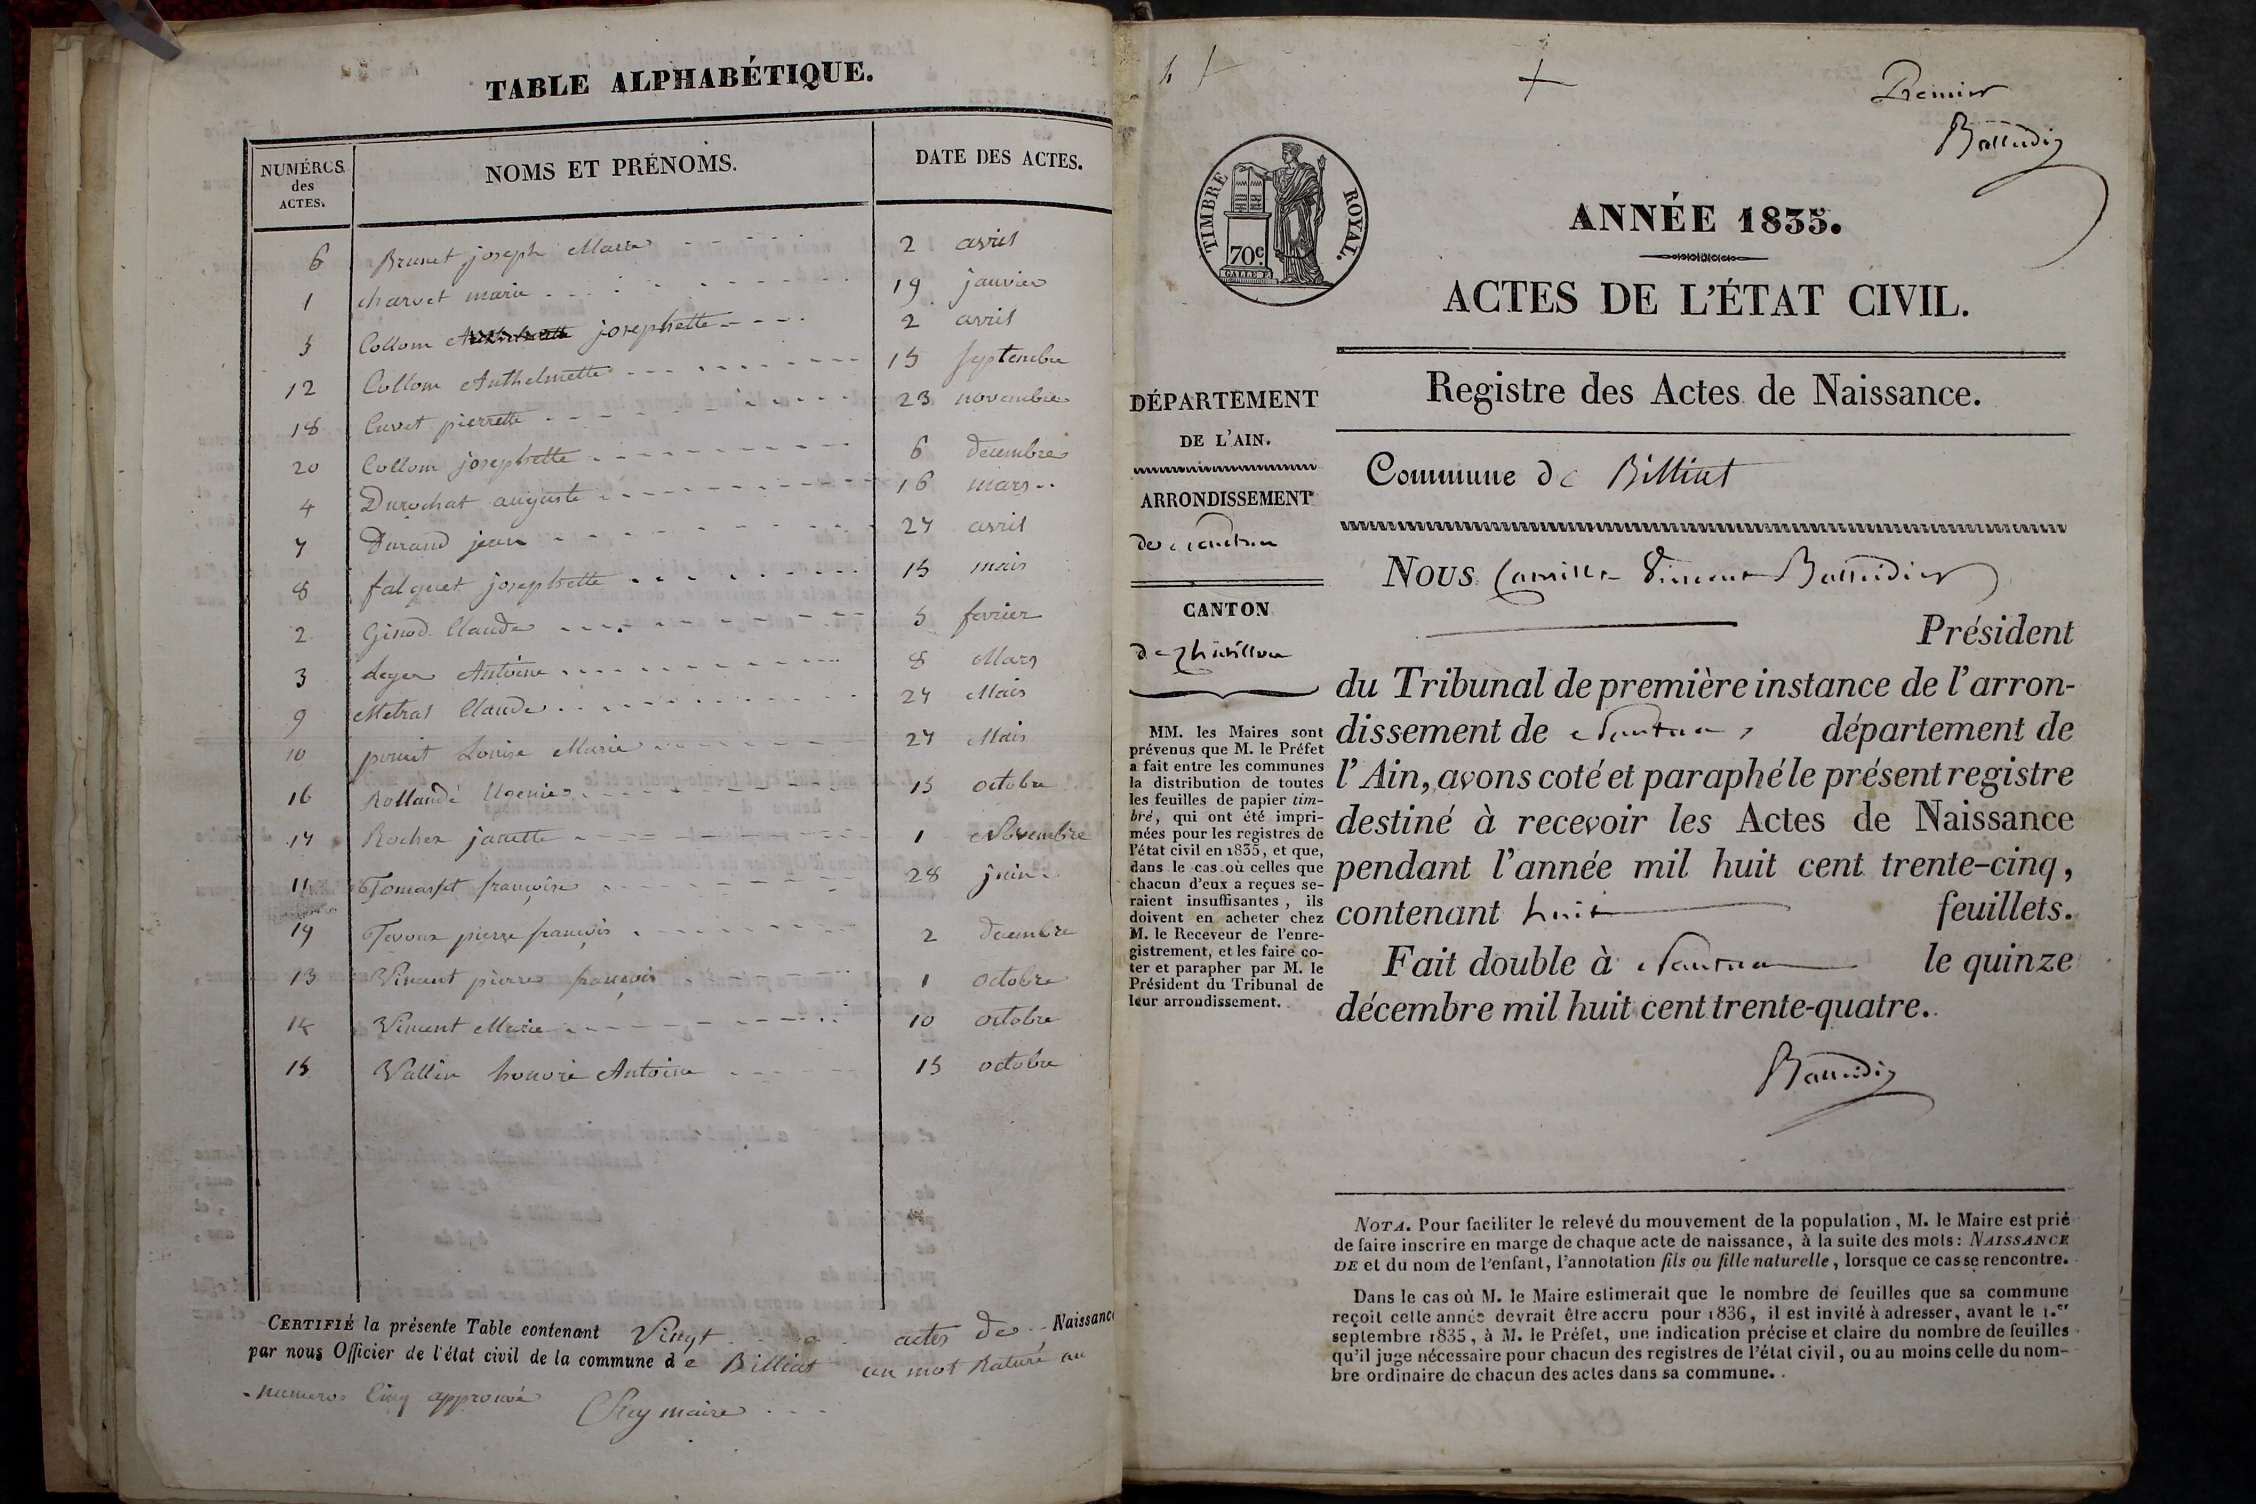 TABLE ALPHABÉTIQUE.
NUMÉROS des ACTES. NOMS ET PRÉNOMS. DATE DES ACTES.
6 Brunet joseph Marie 2 avril
1 charvet marie 19 janvier
5 Collom josephette 2 avril
12 Collom Anthelmette 15 septembre
18 Cuvet pierrette 23 novembre
20 Collom josephette 6 decembre
4 Durochat auguste 16 mars
7 Durand jean 27 avril
8 falquet josephette 15 mais
2 Ginod Claude 5 fevrier
3 Leger Antoine 8 Mars
9 Metral Claude 27 Mais
10 Louise Marie 27 Mais
16 Rollandé 15 octobre
17 Rochex janette 1 Novembre
11 françoise 28 juin
19 pierre françois 2 decembre
13 Vincent pierre françois 1 octobre
14 Vincent Marie 10 octobre
15 Vallin honoré Antoine 15 octobre
CERTIFIÉ la présente Table contenant Vingt actes de Naissance
par nous Officier de l'état civil de la commune de Billiat un mot Raturé au
numeros Cinq approuvé maire
Premier
TIMBRE ROYAL.
70c.
ANNÉE 1835.
ACTES DE L'ÉTAT CIVIL.
Registre des Actes de Naissance.
Commune de Billiat
DÉPARTEMENT
DE L'AIN.
ARRONDISSEMENT
de Nantua
CANTON
de Châtillon
MM. les Maires sont
prévenus que M. le Préfet
a fait entre les communes
la distribution de toutes
les feuilles de papier tim-
bré, qui ont été impri-
mées pour les registres de
l'état civil en 1835, et que,
dans le cas où celles que
chacun d'eux a reçues se-
raient insuffisantes, ils
doivent en acheter chez
M. le Receveur de l'enre-
gistrement, et les faire co-
ter et parapher par M. le
Président du Tribunal de
leur arrondissement.
Nous Camille Vincent
Président
du Tribunal de première instance de l'arron-
dissement de Nantua, département de
l'Ain, avons coté et paraphé le présent registre
destiné à recevoir les Actes de Naissance
pendant l'année mil huit cent trente-cinq,
contenant huit feuillets.
Fait double à Nantua le quinze
décembre mil huit cent trente-quatre.
NOTA. Pour faciliter le relevé du mouvement de la population, M. le Maire est prié
de faire inscrire en marge de chaque acte de naissance, à la suite des mots: NAISSANCE
DE et du nom de l'enfant, l'annotation fils ou fille naturelle, lorsque ce cas se rencontre.
Dans le cas où M. le Maire estimerait que le nombre de feuilles que sa commune
reçoit cette année devrait être accru pour 1836, il est invité à adresser, avant le 1.er
septembre 1835, à M. le Préfet, une indication précise et claire du nombre de feuilles
qu'il juge nécessaire pour chacun des registres de l'état civil, ou au moins celle du nom-
bre ordinaire de chacun des actes dans sa commune.